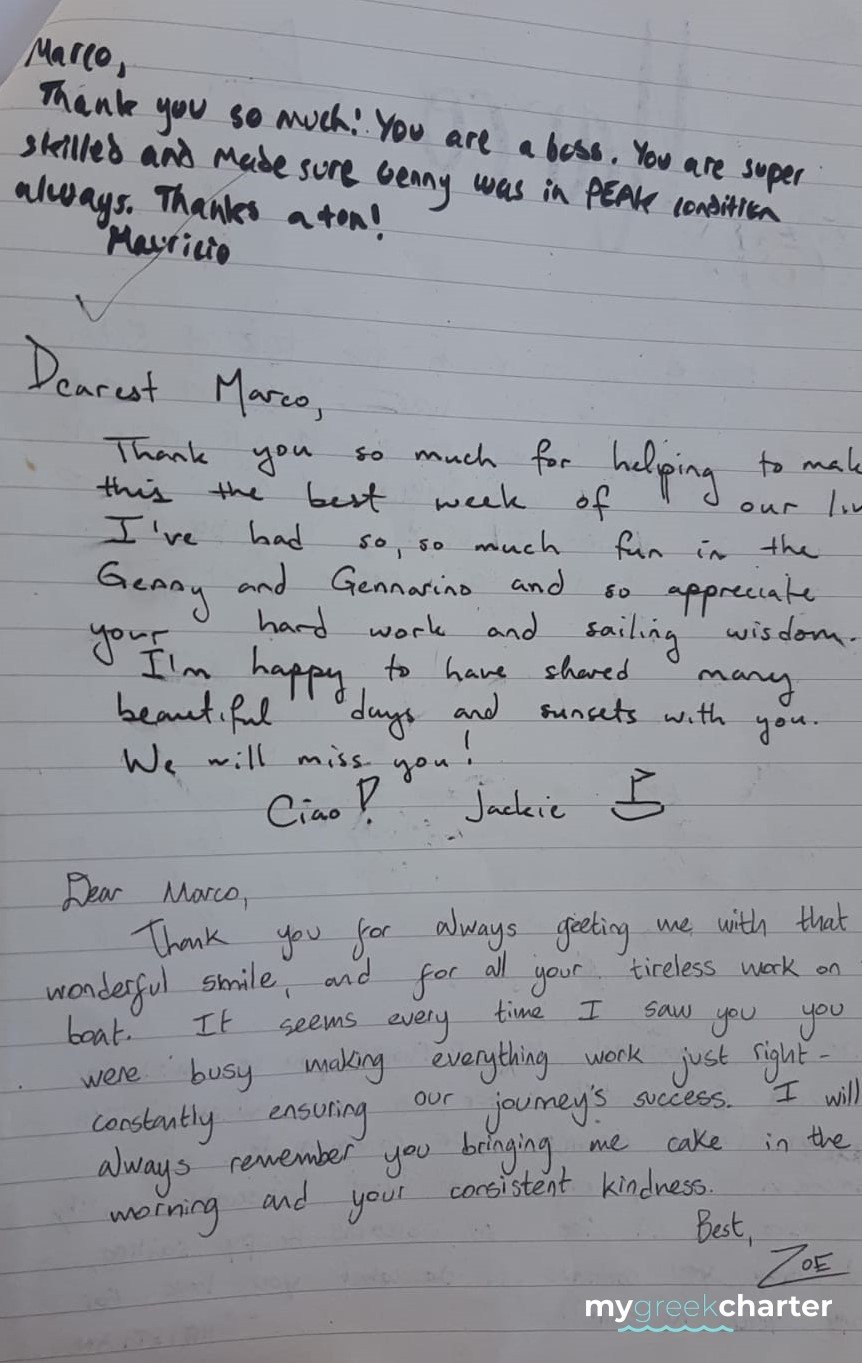 Marco,
Thank you so much! You are a boss. You are super
skilled and made sure Genny was in PEAK condition
always. Thanks a ton!
Mauricio
Dearest Marco,
Thank you so much for helping to mak
this the best week of our liv
I've had so, so much fun in the
Genny and Gennarino and so appreciate
your hard work and sailing wisdom.
I'm happy to have shared many
beautiful days and sunsets with you.
We will miss you!
Ciao! Jackie
Dear Marco,
Thank you for always geeting me with that
wonderful smile, and for all your tireless work on
boat. It seems every time I saw you you
were busy making everything work just right -
constantly ensuring our journey's success. I will
always remember you bringing me cake in the
morning and your consistent kindness.
Best,
ZOE
mygreekcharter